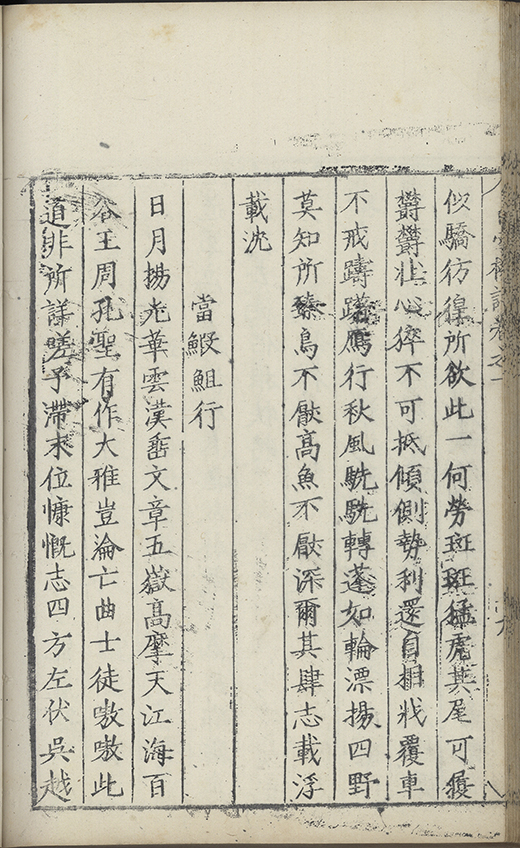 似驕彷徨所欲此一何勞斑斑猛虎其尾可履
欝欝壯心猝不可抵傾側勢利還自相戕覆車
不戒躊躇鴈行秋風駪駪轉蓬如輪漂揚四野
莫知所臻鳥不厭高魚不厭深爾其肆志載浮
載沈
當鰕䱇行
日月揚光華雲漢垂文章五嶽高摩天江海百
谷王周孔聖有作大雅豈淪亡曲士徒嗷嗷此
道非所詳嗟予滯末位慷慨志四方左伏吳越